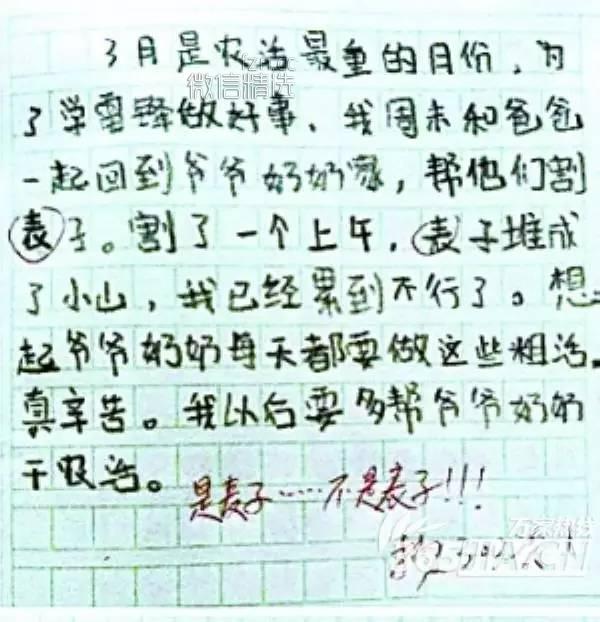 3月是农活最重的月份，为
微信精选
了学雷锋做好事、我周末和爸爸
一起回到爷爷奶奶家，帮他们割
表子。割了一个上午，表子堆成
了小山，我已经累到不行了。想
起爷爷奶奶每天都要做这些粗活。
真辛苦。我以后要多帮爷爷奶奶
干农活。
是麦子……不是表子!!!
万家热线
365JIA.CN